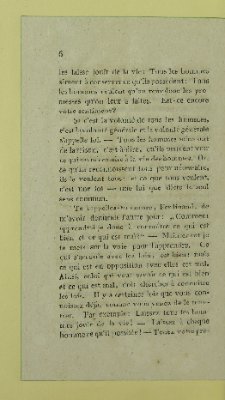 6
les laisse jouir de la vie. Tous les hommes
aiment à conserver ce qu'ils possèdent. Tous
les hommes veulent qu'on remplisse les pro-
messes qu'on leur a faites. Est-ce encore
votre sentiment?
Si c'est la volonté de tous les hommes,
c'est la volonté générale et la volonté générale
s'appelle loi. — Tous les hommes
c'est à dire, qu'ils veulent
à la vie des hommes. Or,
ce qu'on reconnoit
ils le veulent tous: et ce que tous veulent,
c'est une loi — une loi que dicte le seul
sens commun.
Tu rappelles-tu encore, Ferdinand, de
m'avoir demandé l'autre jour: „Comment
apprendrai-je donc à connoître ce qui est
bien, et ce qui est mal?" — Maintenant je
te mets sur la voie pour l'apprendre. Ce
qui s'accorde avec les loix, est bien: mais
ce qui est en opposition avec elles est mal.
Ainsi, celui qui veut savoir ce qui est bien
et ce qui est mal, doit chercher à connoître
les loix. Il y a certaines loix que vous con-
noissez déjà, comme nous venons de le trou-
ver. Par exemple: Laissez tous les hom-
mes jouir de la vie! — Laissez à chaque
homme ce qu'il possède! — Tenez votre pro-